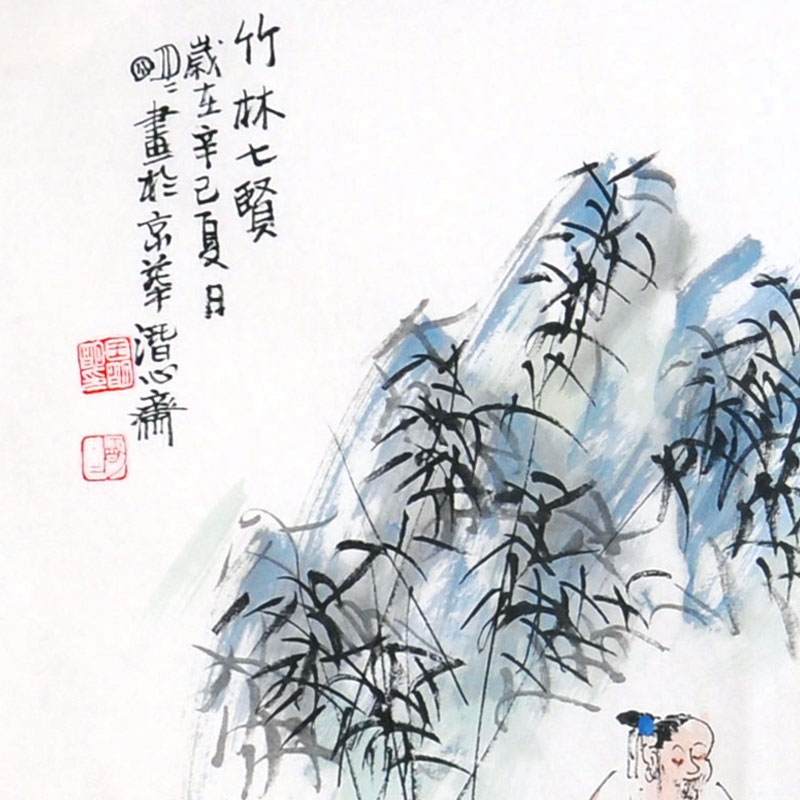 竹林七賢
歲在辛己夏月
畫於京華潛心齋